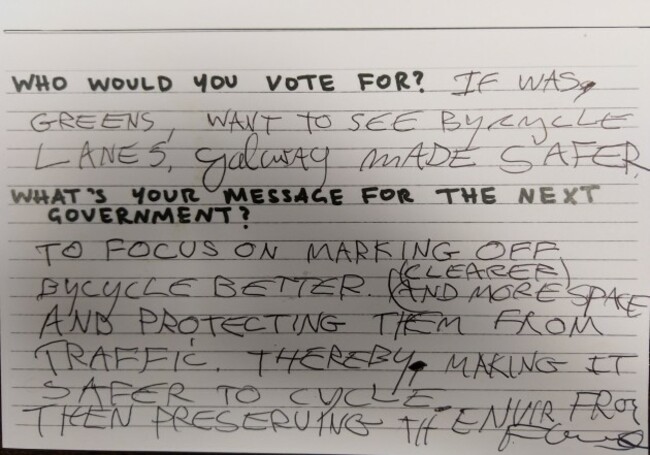 WHO WOULD YOU VOTE FOR? IF WAS,
GREENS, WANT TO SEE BYCYCLE
LANES, Galway MADE SAFER.
WHAT'S YOUR MESSAGE FOR THE NEXT
GOVERNMENT?
TO FOCUS ON MARKING OFF
BYCYCLE BETTER. (CLEARER)
(AND MORE SPACE
AND PROTECTING THEM FROM
TRAFFIC. THEREBY, MAKING IT
SAFER TO CYCLE
THEN PRESERVING THE